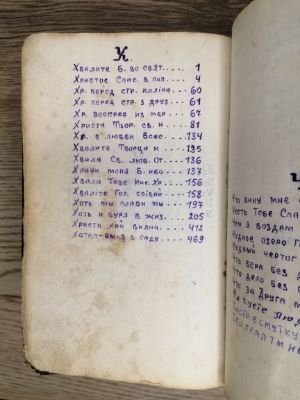 Х.
Хвалите Б. во свят..... 1
Христос Спас. в пол.... 4
Хр. перед стр. коліна.. 60
Хр. перед стр. з друз.. 61
Хр. воскрес из мер... 67
Христа Твор. св. и... 81
Хр. в любви Всес... 134
Хвалите Творца и.. 135
Хвала Св. люб. От... 136
Храни меня Б. ибо... 137
Хвала Тебе Иис. Хр... 156
Хвалите Гос. співай... 158
Хоть мы слави мы... 197
Хоть и буря в жиз.. 205
Христа хай велич.. 412
Хотел-бы-я в саду... 469
Ч
Что вину мне
Честь Тебе Спа
Чем я воздам
Чудное озеро Г
Чудный чертог
Что вера без
Что дело без
Что за друга м